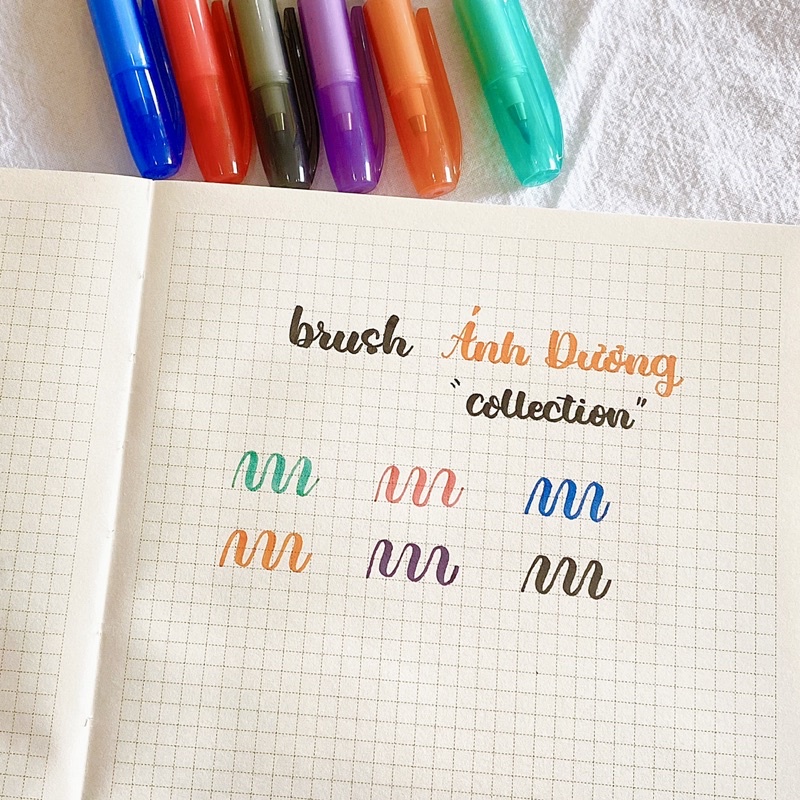 brush Ánh Dương
"collection"